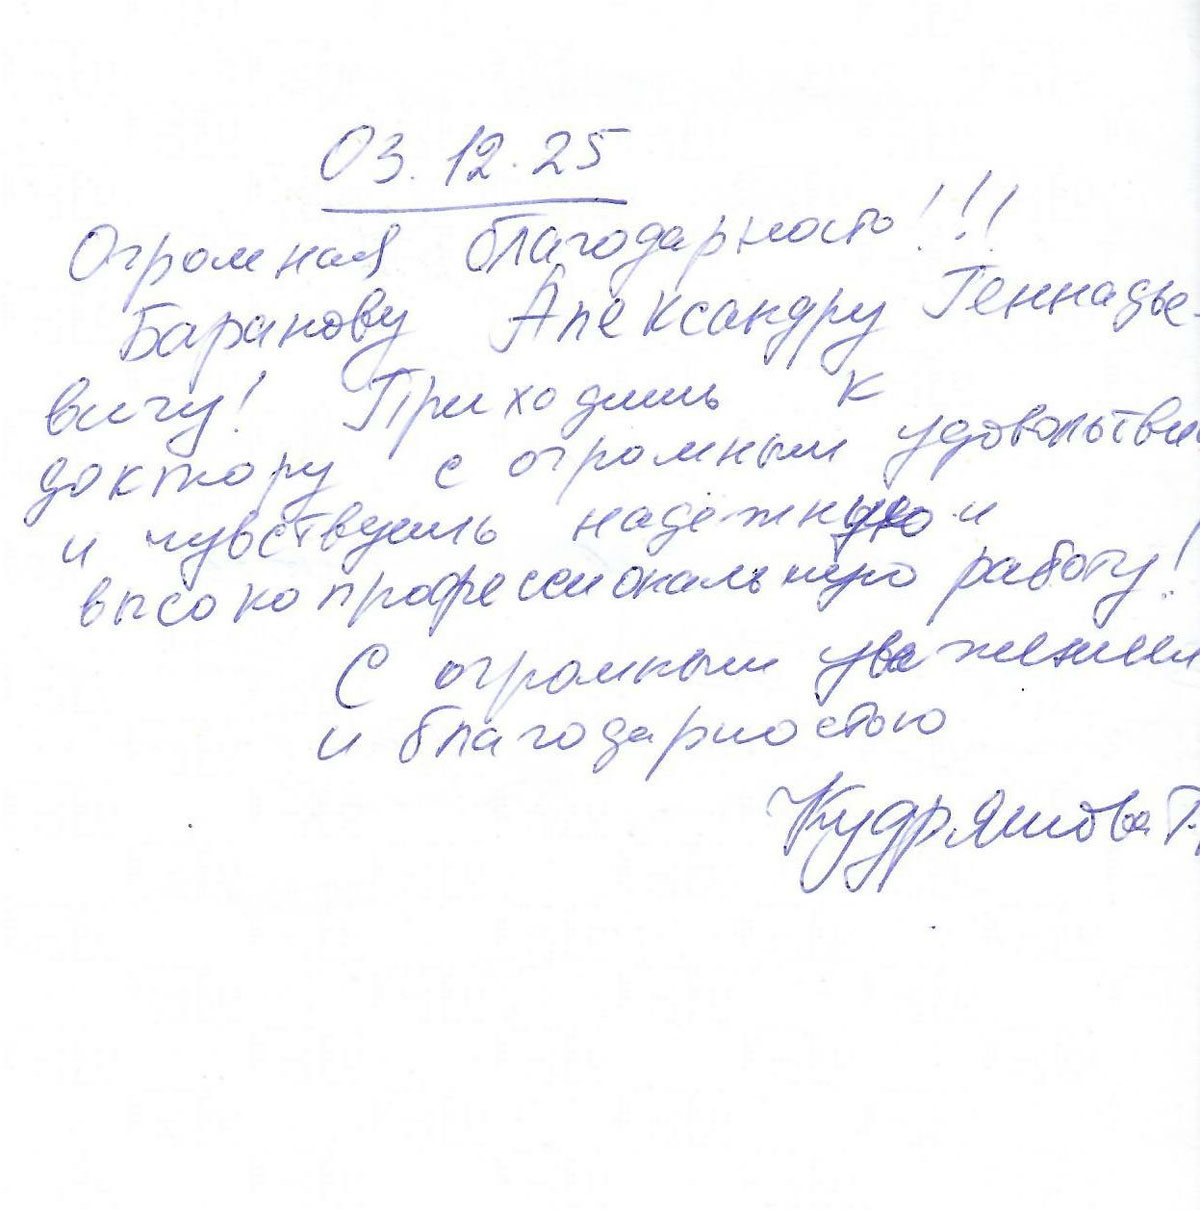 03.12.25
Огромная благодарность!!!
Баранову Александру Геннадье-
вичу! Приходишь к
доктору с огромным удовольстви
и чувствуешь надежную и
высокопрофессиональную работу!
С огромным уважением
и благодарностью
Кудряшова Т.